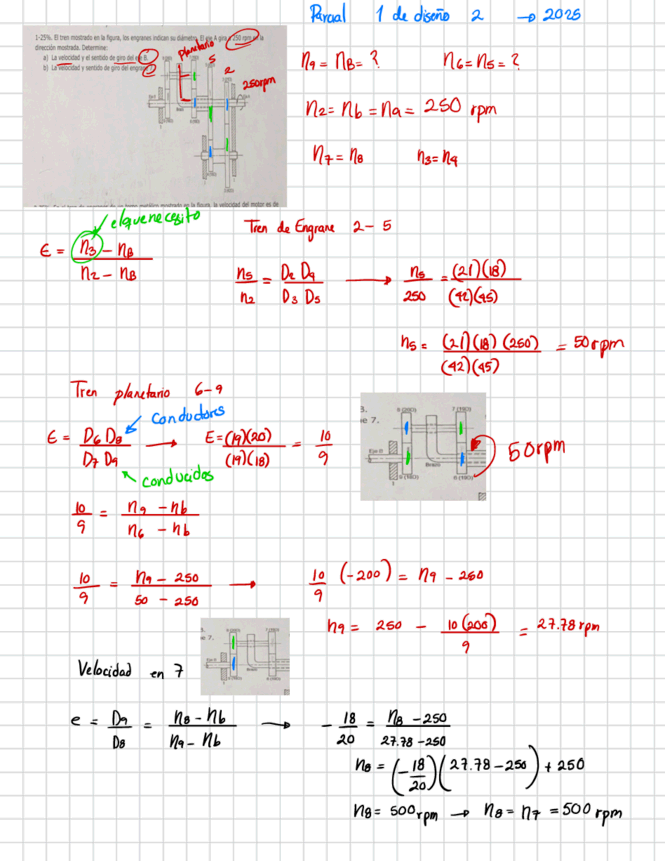 Parcial 1 de diseño 2 → 2025
1-25%. El tren mostrado en la figura, los engranes indican su diámetro. El eje A gira a 250 rpm en la
dirección mostrada. Determine:
a) La velocidad y el sentido de giro del eje B.
b) La velocidad y sentido de giro del engrane 7.
planetario
5
2
250rpm
n9 = nB = ? n6 = n5 = ?
n2 = nb = na = 250 rpm
n7 = n8 n3 = n4
el que necesito
Tren de Engrane 2-5
ϵ = n3 - nB / n2 - nB
n5 / n2 = D2 D4 / D3 D5 → n5 / 250 = (21)(18) / (42)(45)
n5 = (21)(18)(250) / (42)(45) = 50rpm
Tren planetario 6-9
conductores
ϵ = D6 D8 / D7 D9 → E = (19)(20) / (19)(18) = 10 / 9
conducidos
e 7.
Eje B
Brazo
50rpm
10 / 9 = n9 - nb / n6 - nb
10 / 9 = n9 - 250 / 50 - 250 → 10 / 9 (-200) = n9 - 250
n9 = 250 - 10(200) / 9 = 27.78 rpm
Velocidad en 7
e = D9 / D8 = n8 - nb / n9 - nb → - 18 / 20 = n8 - 250 / 27.78 - 250
n8 = (- 18 / 20)(27.78 - 250) + 250
n8 = 500rpm → n8 = n7 = 500 rpm